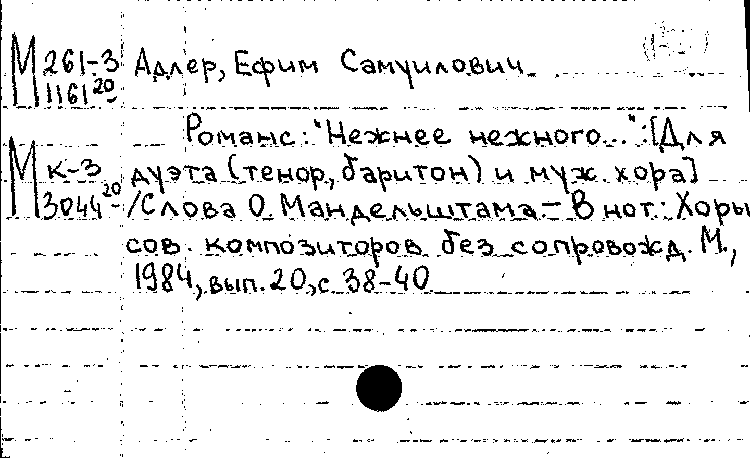 М 261-3 Адлер, Ефим Самуилович
1161 20-
Романс: "Нежнее нежного...": [Для
М к-3 дуэта (тенор, баритон) и муж. хора]
3044 20- /Слова О. Мандельштама - В нот.: Хоры
сов. композиторов без сопровожд. М.,
1984, вып. 20, с 38-40